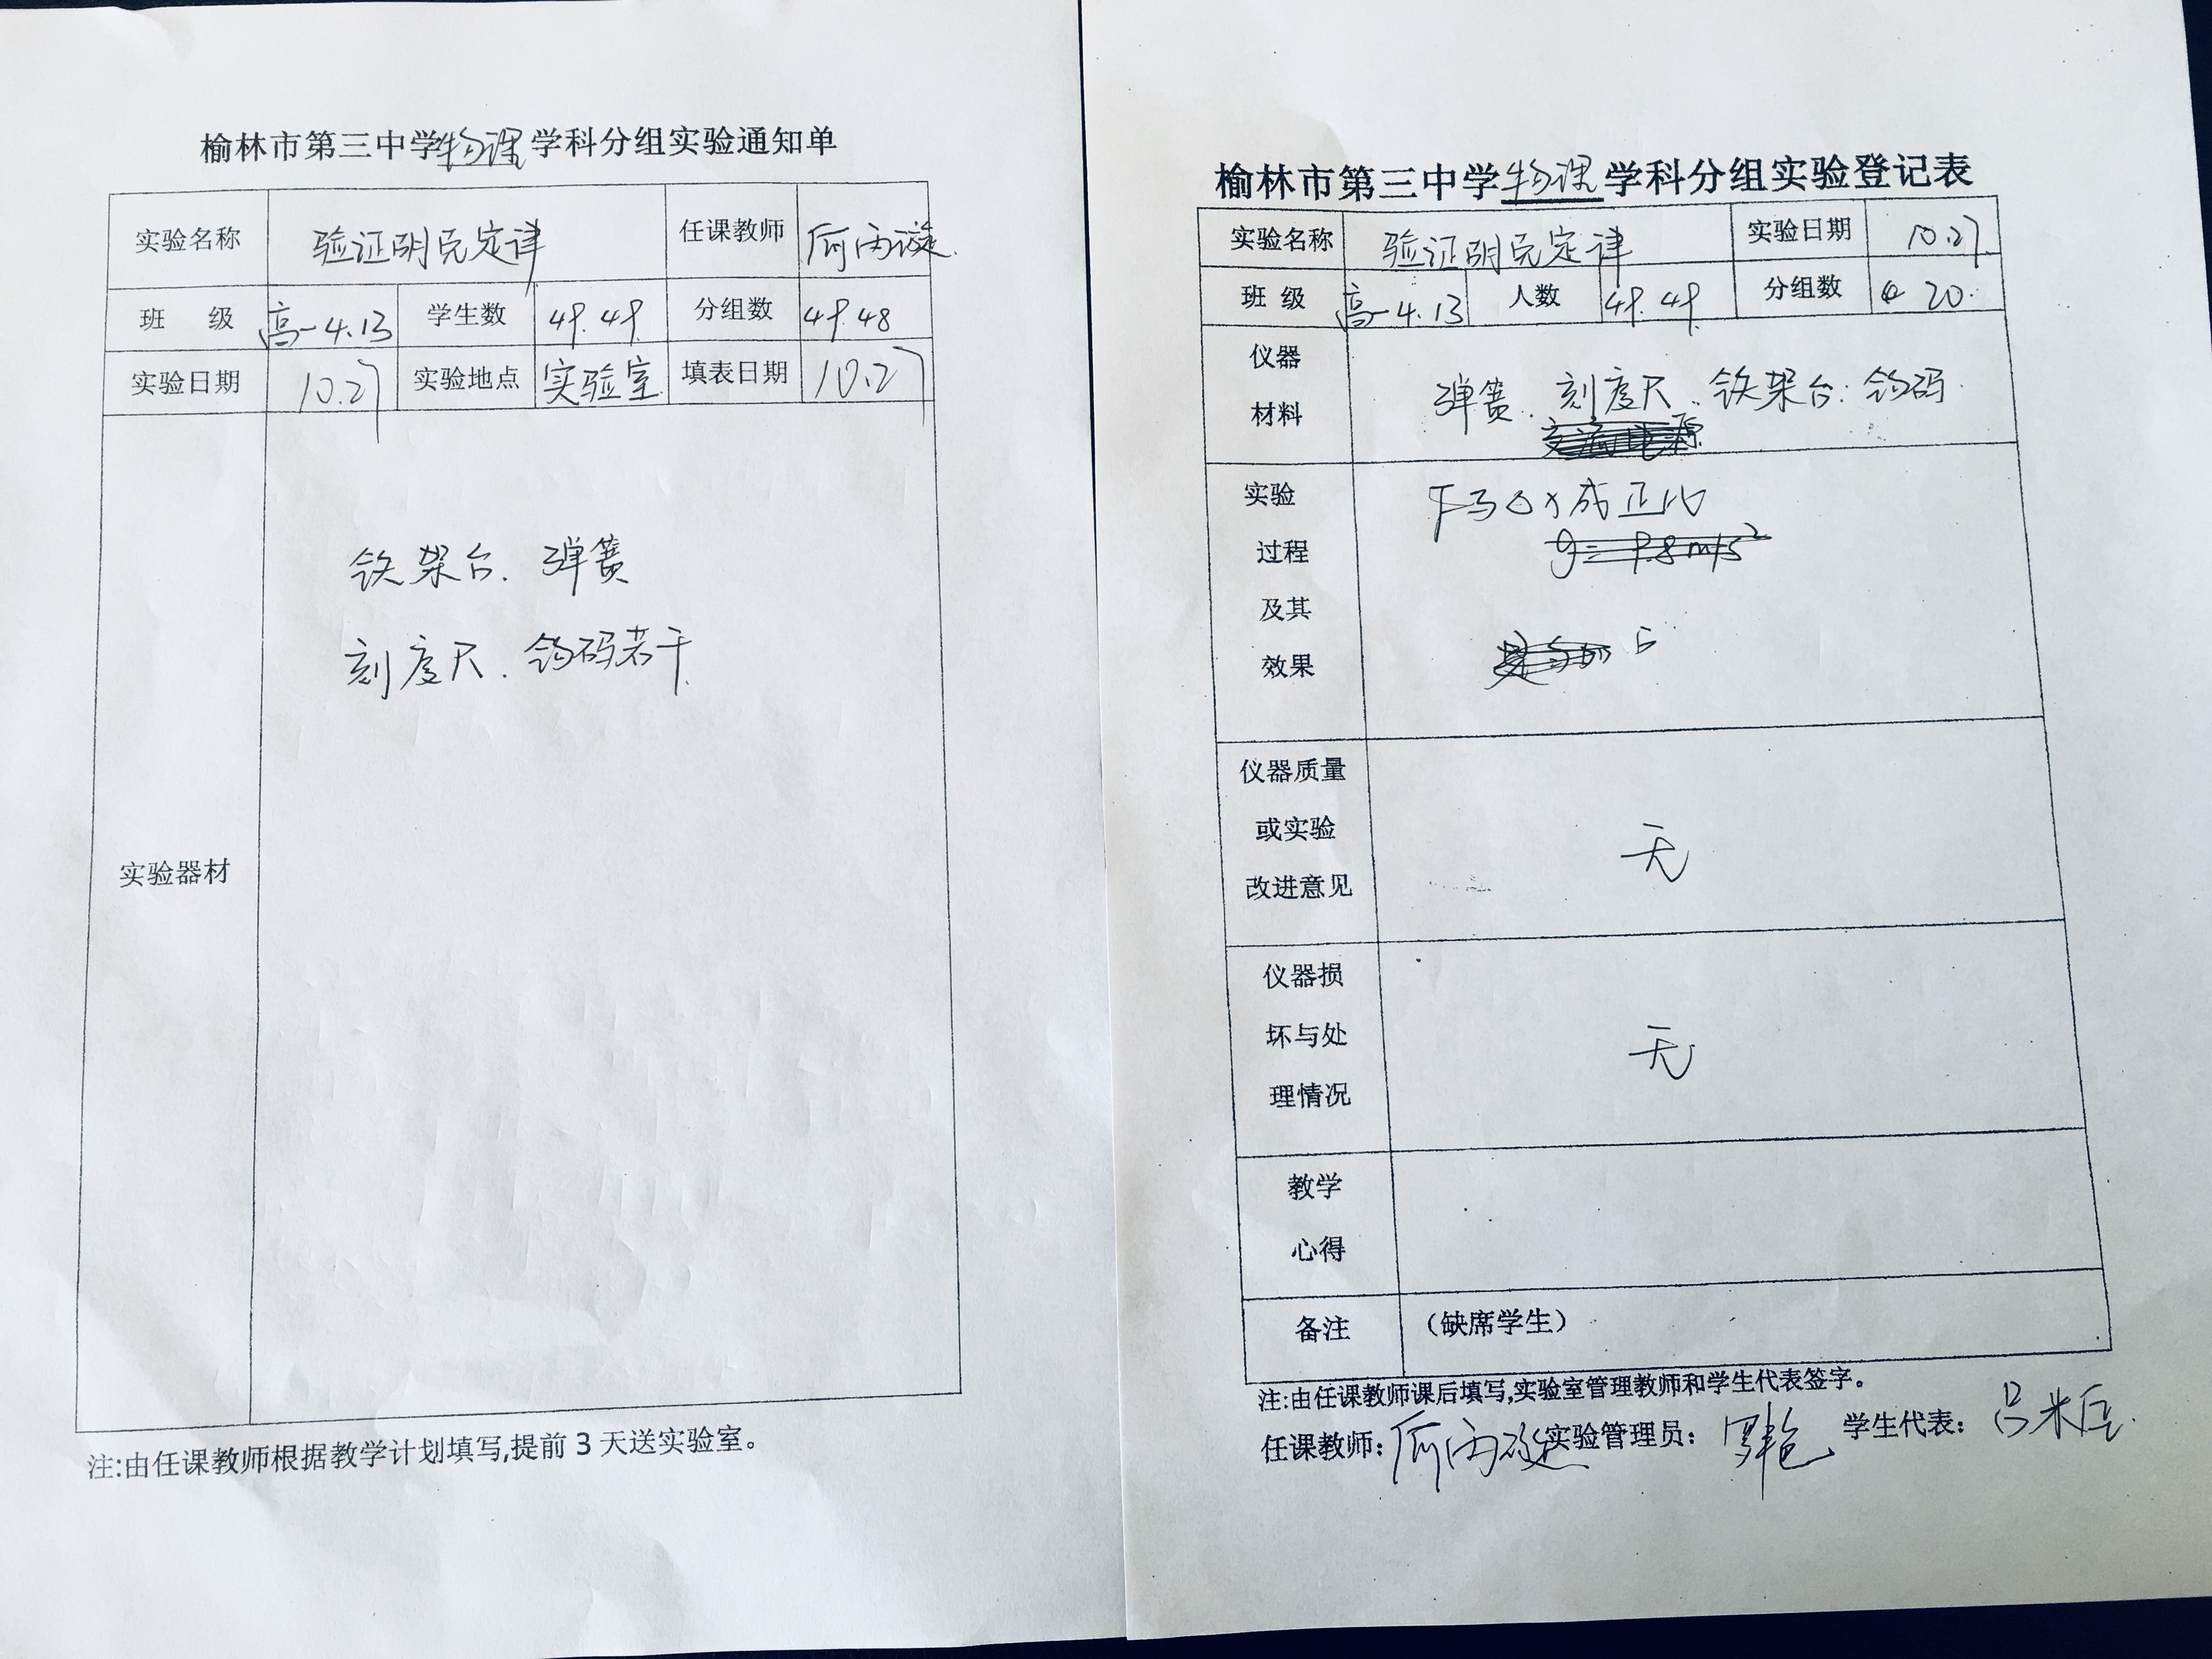 榆林市第三中学物理学科分组实验通知单
实验名称 验证胡克定律 任课教师
班 级 高一4.13 学生数 49.49 分组数 49.48
实验日期 10.27 实验地点 实验室 填表日期 10.27
实验器材
铁架台.弹簧
刻度尺.钩码若干
注:由任课教师根据教学计划填写,提前3天送实验室。
榆林市第三中学物理学科分组实验登记表
实验名称 验证胡克定律 实验日期 10.27
班 级 高一4.13 人数 49.49 分组数 20.
仪器
材料
弹簧.刻度尺.铁架台.钩码.
交流电源
实验
过程
及其
效果
F与△x成正比
g=9.8m/s²
仪器质量
或实验
改进意见
无
仪器损
坏与处
理情况
无
教学
心得
备注 （缺席学生）
注:由任课教师课后填写,实验室管理教师和学生代表签字。
任课教师: 实验管理员: 学生代表: